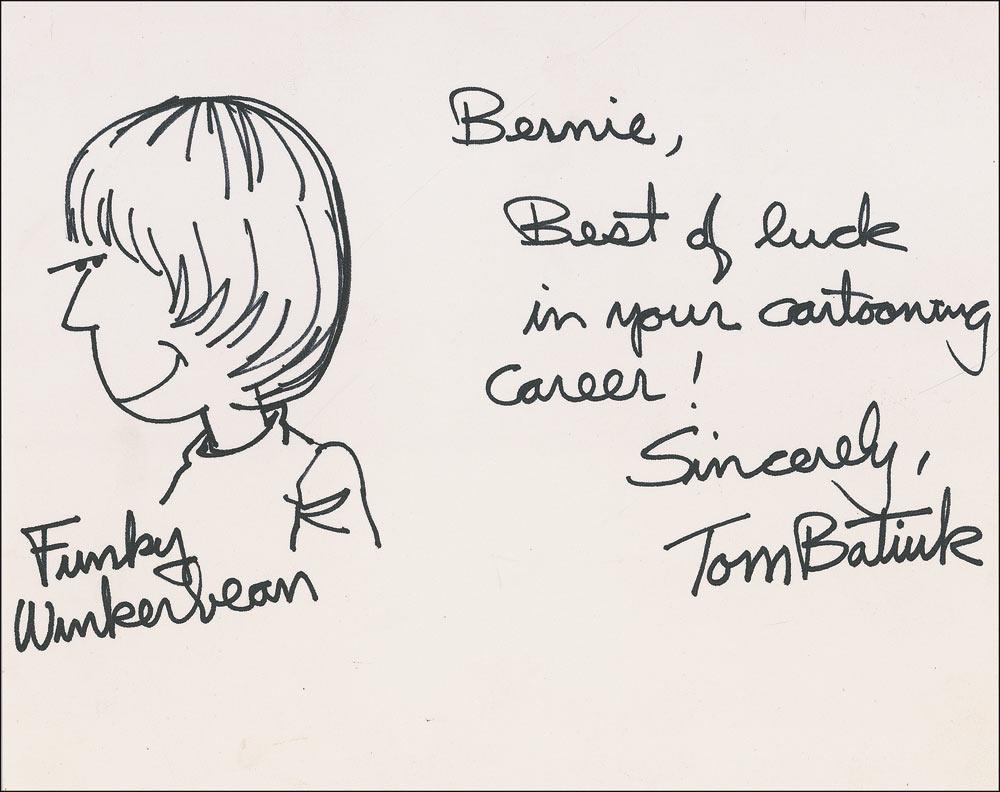 Bernie,
Best of luck
in your cartooning
career!
Sincerely,
Tom Batiuk
Funky
Winkerbean